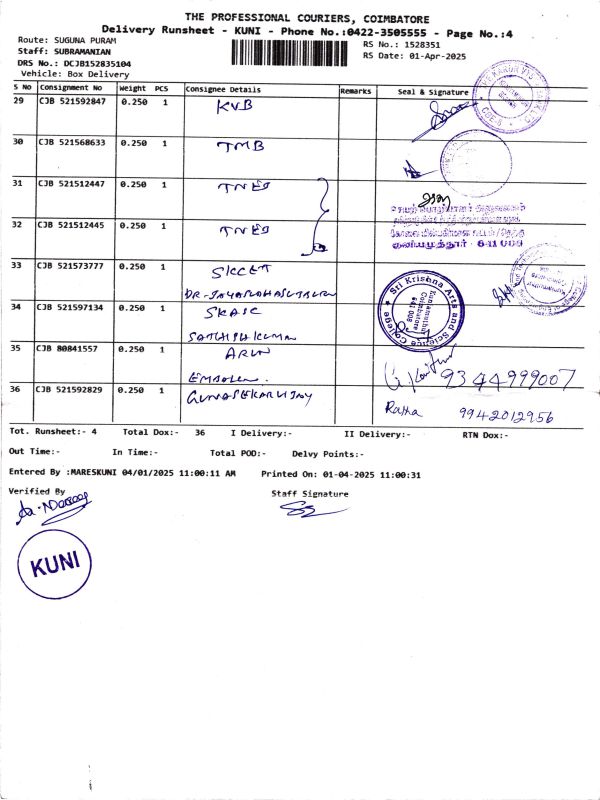 THE PROFESSIONAL COURIERS, COIMBATORE
Delivery Runsheet - KUNI - Phone No.:0422-3505555 - Page No.:4
Route: SUGUNA PURAM
RS No.: 1528351
Staff: SUBRAMANIAN
RS Date: 01-Apr-2025
DRS No.: DCJB152835104
Vehicle: Box Delivery
S No Consignment No Weight PCS Consignee Details Remarks Seal & Signature
29 CJB 521592847 0.250 1 KVB
30 CJB 521568633 0.250 1 TMB
31 CJB 521512447 0.250 1 TNEB
32 CJB 521512445 0.250 1 TNEB
குனியமுத்தூர் - 641 008
33 CJB 521573777 0.250 1 SKCET
34 CJB 521597134 0.250 1 SKASC
SATHISHKUMAR
Sri Krishna Arts and Science College
Kuniamuthur
Coimbatore
641 008
35 CJB 80841557 0.250 1 ARUN
9344999007
36 CJB 521592829 0.250 1 GUNASEKARVIJAY
9942012956
Tot. Runsheet:- 4 Total Dox:- 36 I Delivery:- II Delivery:- RTN Dox:-
Out Time:- In Time:- Total POD:- Delvy Points:-
Entered By :MARESKUNI 04/01/2025 11:00:11 AM Printed On: 01-04-2025 11:00:31
Verified By
Staff Signature
KUNI